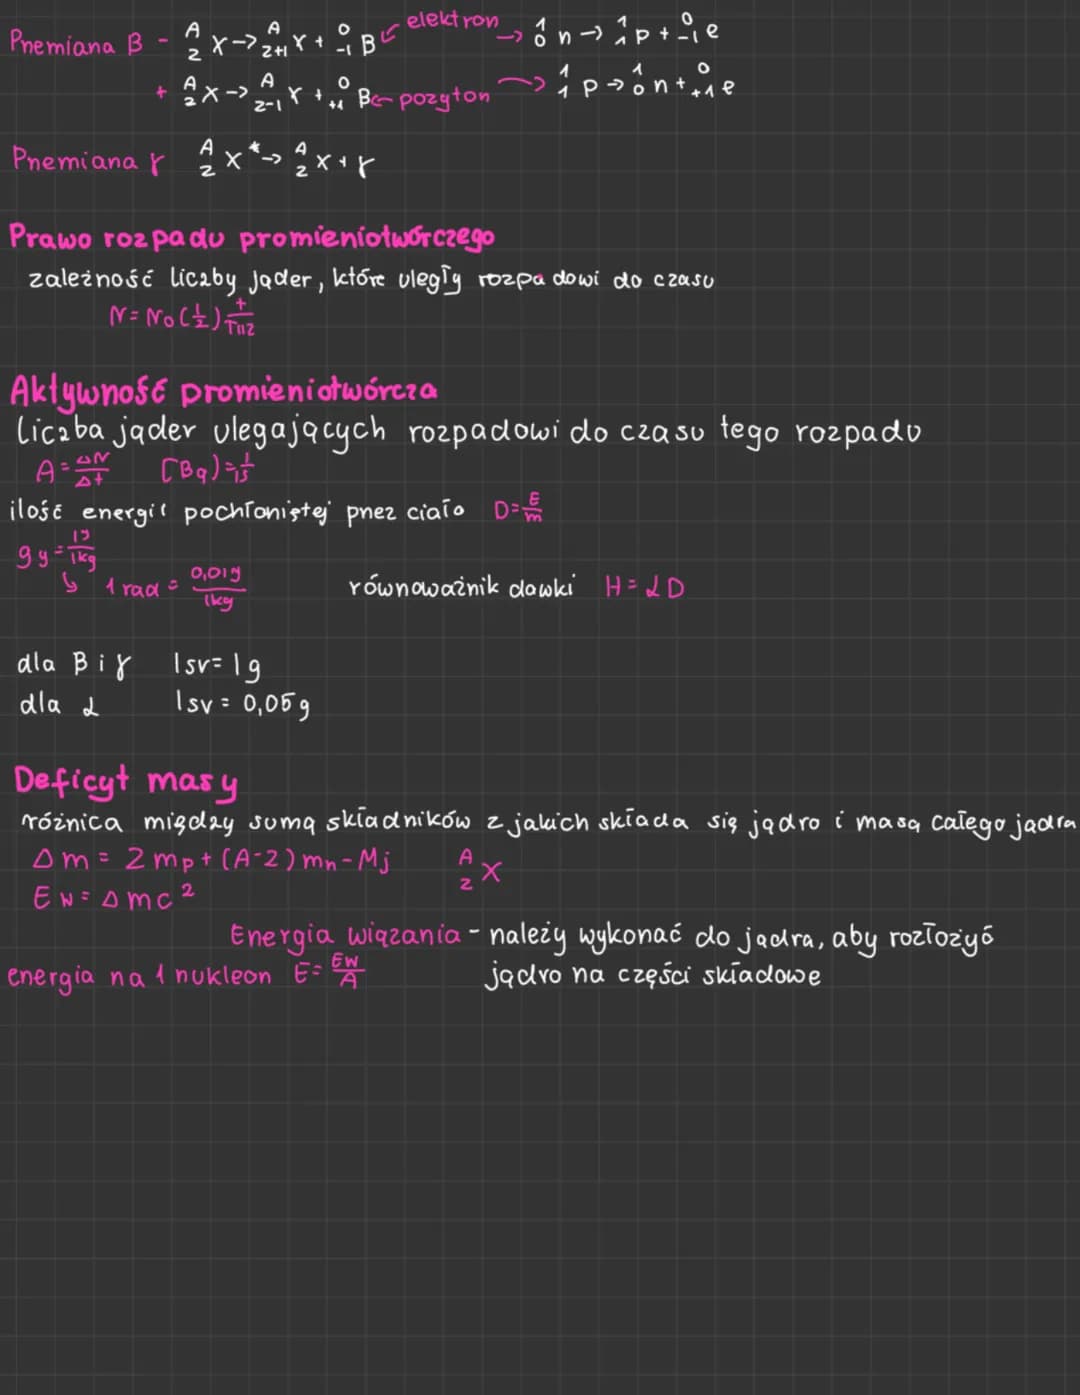 Przemiana β - ᴬ₂X → ᴬ₂₊₁Y + ⁰₋₁β ← elektron → ¹₀n → ¹₁p + ⁰₋₁e
+ ᴬ₂X → ᴬ₂₋₁Y + ⁰₊₁β ← pozyton → ¹₁p → ¹₀n + ⁰₊₁e
Przemiana γ ᴬ₂X* → ᴬ₂X + γ
Prawo rozpadu promieniotwórczego
zależność liczby jąder, które uległy rozpadowi do czasu
N = N₀(1/2) t/T1/2
Aktywność promieniotwórcza
liczba jąder ulegających rozpadowi do czasu tego rozpadu
A = ΔN/Δt [Bq] = 1/1s
ilość energii pochłoniętej przez ciało D = E/m
gy = 1J/1kg
↳ 1 rad = 0,01J/1kg równoważnik dawki H = αD
dla β i γ 1sv = 1g
dla α 1sv = 0,05g
Deficyt masy
różnica między sumą składników z jakich składa się jądro i masą całego jądra
Δm = Zmp + (A-Z)mn - Mj ᴬ₂X
Ew = Δmc²
Energia wiązania - należy wykonać do jądra, aby rozłożyć
energia na 1 nukleon E = Ew/A jądro na części składowe